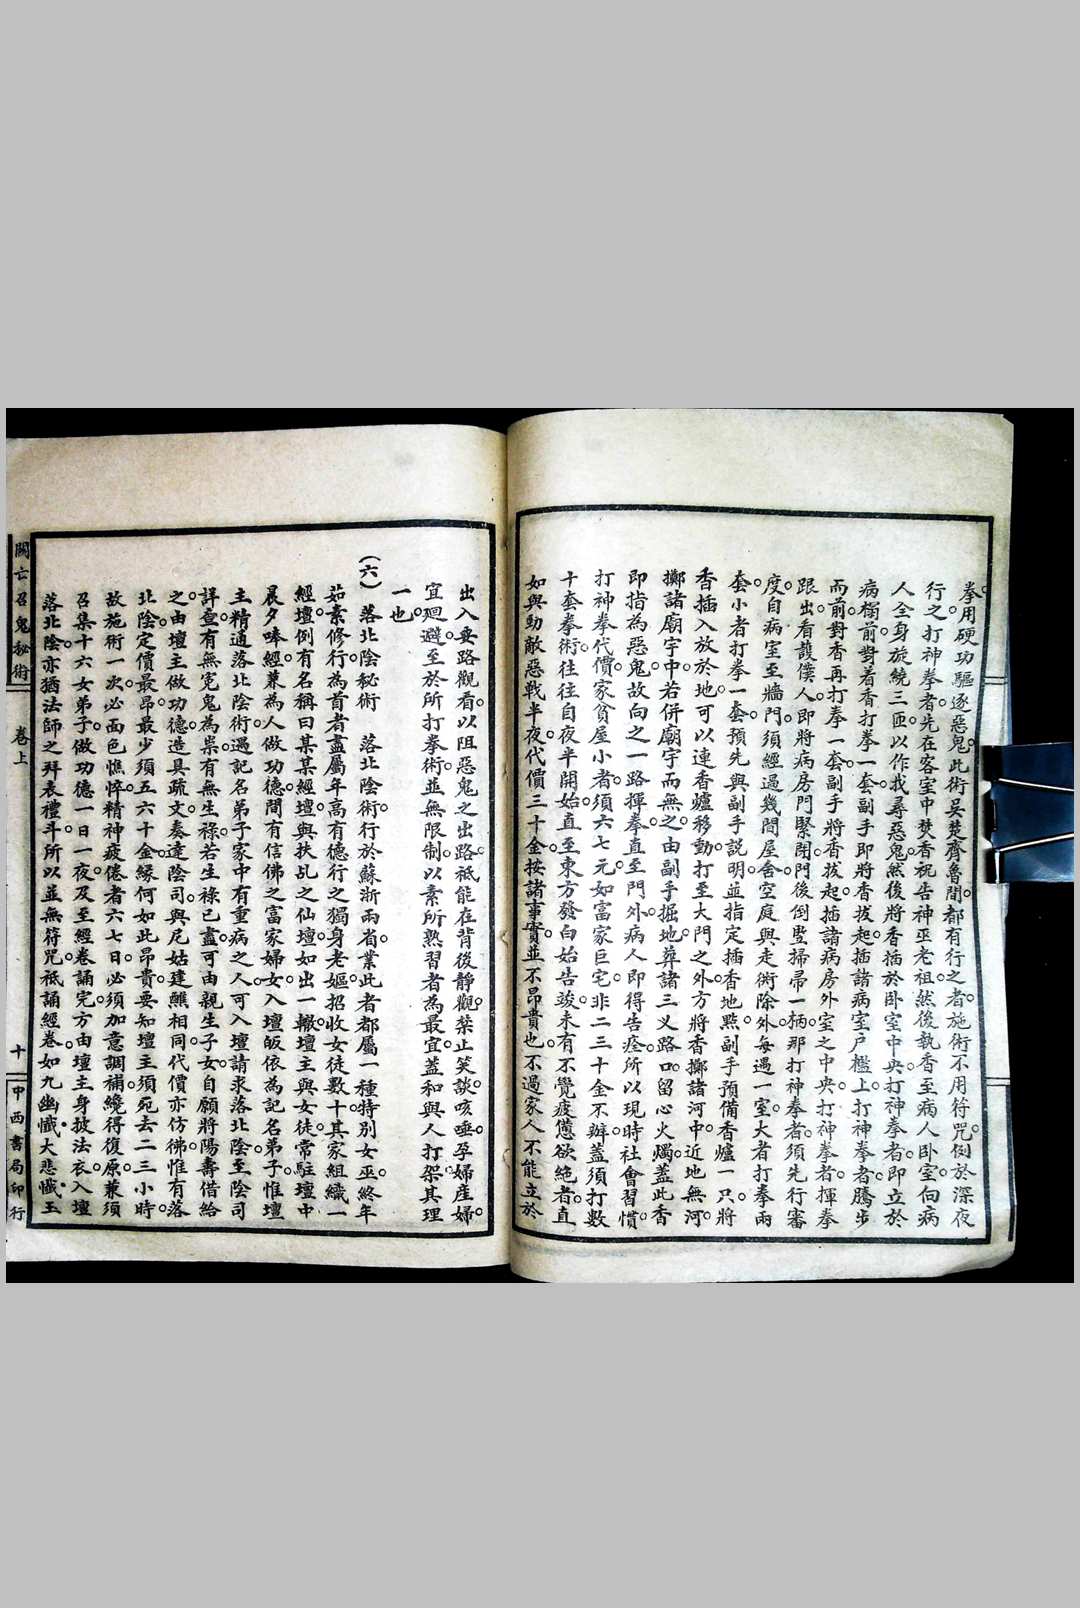 拳。用硬功驅逐惡鬼。此術吳楚齊魯間。都有行之者。施術不用符咒。例於深夜
行之。打神拳者。先在客室中焚香祝告神巫老祖。然後執香至病人卧室。向病
人全身旋繞三匝。以作找尋惡鬼。然後將香插於卧室中央。打神拳者。即立於
病榻前。對着香打拳一套。副手即將香拔起。插諸病室户檻上。打神拳者。騰步
而前。對香再打拳一套。副手將香拔起。插諸病房外室之中央。打神拳者。揮拳
跟出。看護僕人。即將病房門緊閉。門後倒竪掃帚一柄。那打神拳者。須先行審
度。自病室至牆門。須經過幾間屋舍。空庭與走衖除外。每遇一室。大者打拳兩
套。小者打拳一套。預先與副手説明。並指定插香地點。副手預備香爐一只。將
香插入。放於地。可以連香爐移動。打至大門之外。方將香擲諸河中。近地無河。
擲諸廟宇中。若併廟宇而無之。由副手掘地葬諸三义路口。留心火燭。蓋此香
即指為惡鬼。故向之一路揮拳。直至門外。病人即得告痊。所以現時社會習慣。
打神拳代價。家貧屋小者。須六七元。如富家巨宅。非二三十金不辦。蓋須打數
十套拳術。往往自夜半開始。直至東方發白。始告竣。未有不覺疲憊欲絕者。直
如與勁敵惡戰半夜。代價三十金。按諸事實。並不昂貴也。不過家人不能立於
出入要路觀看。以阻惡鬼之出路。祗能在背後靜觀。禁止笑談咳唾。孕婦產婦。
宜廻避。至於所打拳術。並無限制。以素所熟習者為最宜。蓋和與人打架其理
一也。
（六） 落北陰秘術 落北陰術。行於蘇浙兩省。業此者都屬一種特別女巫。終年
茹素修行。為首者盡屬年高有德行之獨身老嫗。招收女徒數十。其家組織一
經壇。例有名稱曰某某經壇。與扶乩之仙壇如出一轍。壇主與女徒。常駐壇中
晨夕唪經。兼為人做功德。間有信佛之富家婦女。入壇皈依。為記名弟子。惟壇
主精通落北陰術。遇記名弟子家中有重病之人。可入壇請求落北陰。至陰司
詳查有無寃鬼為祟。有無生祿。若生祿已盡。可由親生子女。自願將陽壽借給
之。由壇主做功德。造具疏文。奏達陰司。與尼姑建醮相同。代價亦仿彿。惟有落
北陰。定價最昂。最少須五六十金。緣何如此昂貴。要知壇主須宛去二三小時。
故施術一次。必面色憔悴。精神疲倦者六七日。必須加意調補。纔得復原。兼須
召集十六女弟子。做功德一日一夜。及至經卷誦完。方由壇主身披法衣。入壇
落北陰。亦猶法師之拜表禮斗。所以並無符咒。祗誦經卷。如九幽懺大悲懺玉
關亡召鬼秘術 卷上 十 中西書局印行